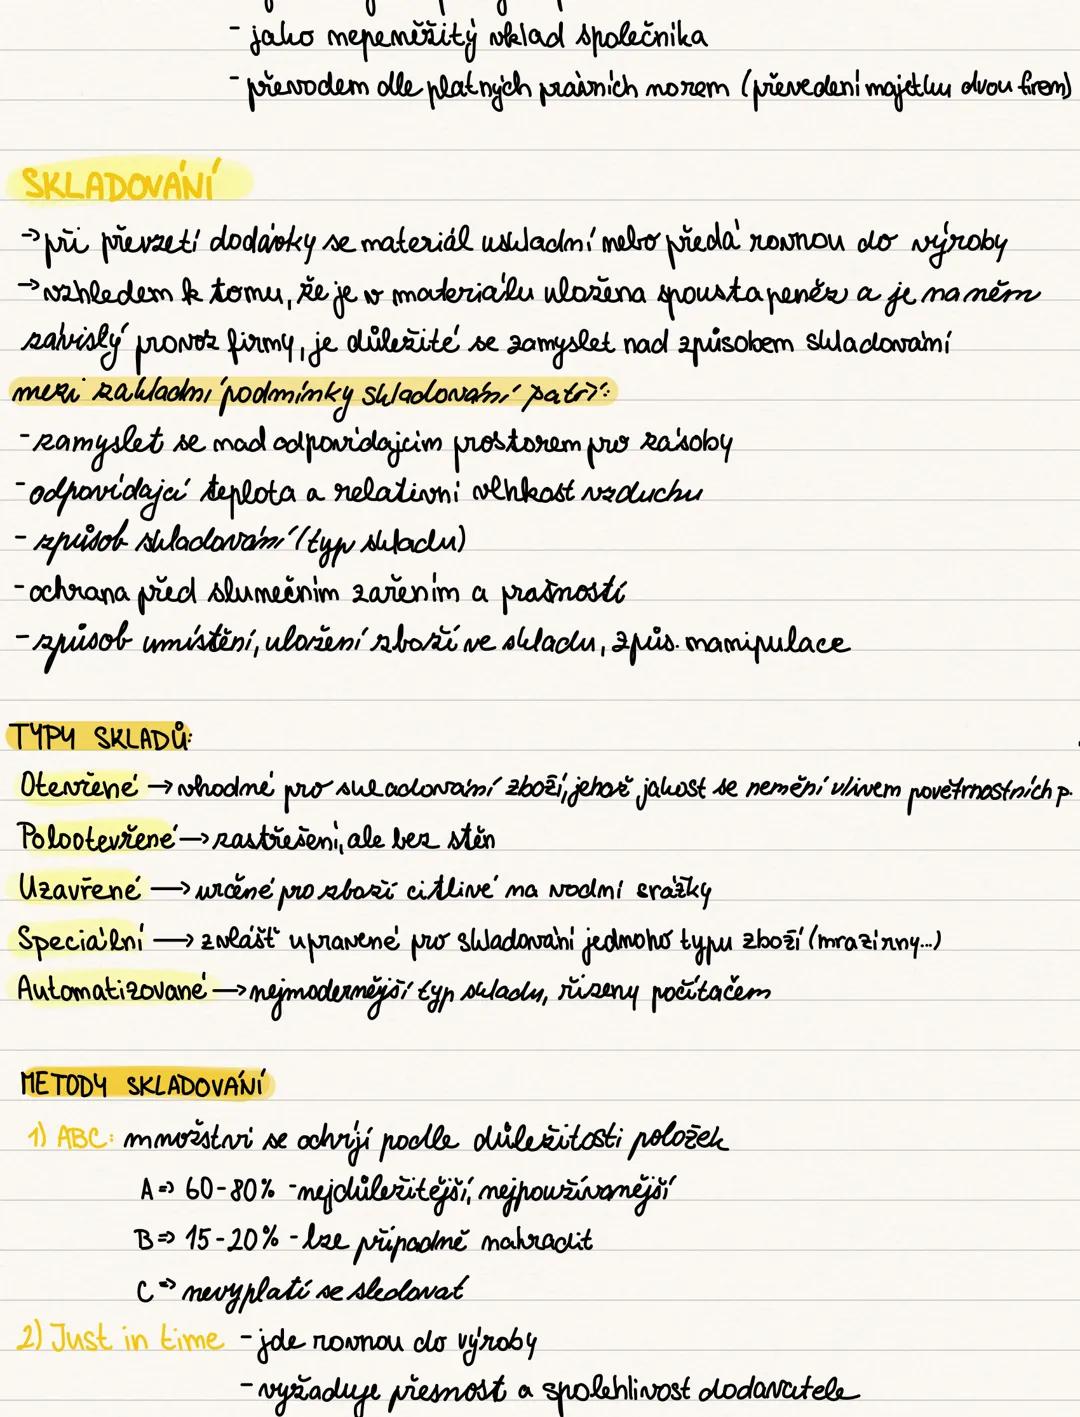 - jako nepeněžitý vklad společníka
- převodem dle platných právních norem (převedení majetku dvou firem)
SKLADOVÁNÍ
→ při převzetí dodávky se materiál uskladní nebo předá rovnou do výroby
→ vzhledem k tomu, že je v materiálu uložena spousta peněz a je na něm
závislý provoz firmy, je důležité se zamyslet nad způsobem skladování
mezi základní podmínky skladování patří:
- zamyslet se nad odpovídajcim prostorem pro zásoby
- odpovídajcí teplota a relativní vlhkost vzduchu
- způsob skladování (typ skladu)
- ochrana před slunečním zářením a prašností
- způsob umístění, uložení zboží ve skladu, způs. manipulace
TYPY SKLADŮ:
Otevřené → vhodné pro skladování zboží, jehož jakost se nemění vlivem povětrnostních p.
Polootevřené → zastřešení, ale bez stěn
Uzavřené → určené pro zboží citlivé na vodní srážky
Speciální → zvlášť upravené pro skladování jednoho typu zboží (mrazírny...)
Automatizované → nejmodernější typ skladu, řízeny počítačem
METODY SKLADOVÁNÍ
1) ABC: množství se odvíjí podle důležitosti položek
A => 60-80% - nejdůležitější, nejpoužívanější
B => 15-20% - lze případně nahradit
C => nevyplatí se sledovat
2) Just in time - jde rovnou do výroby
- vyžaduje přesnost a spolehlivost dodavatele